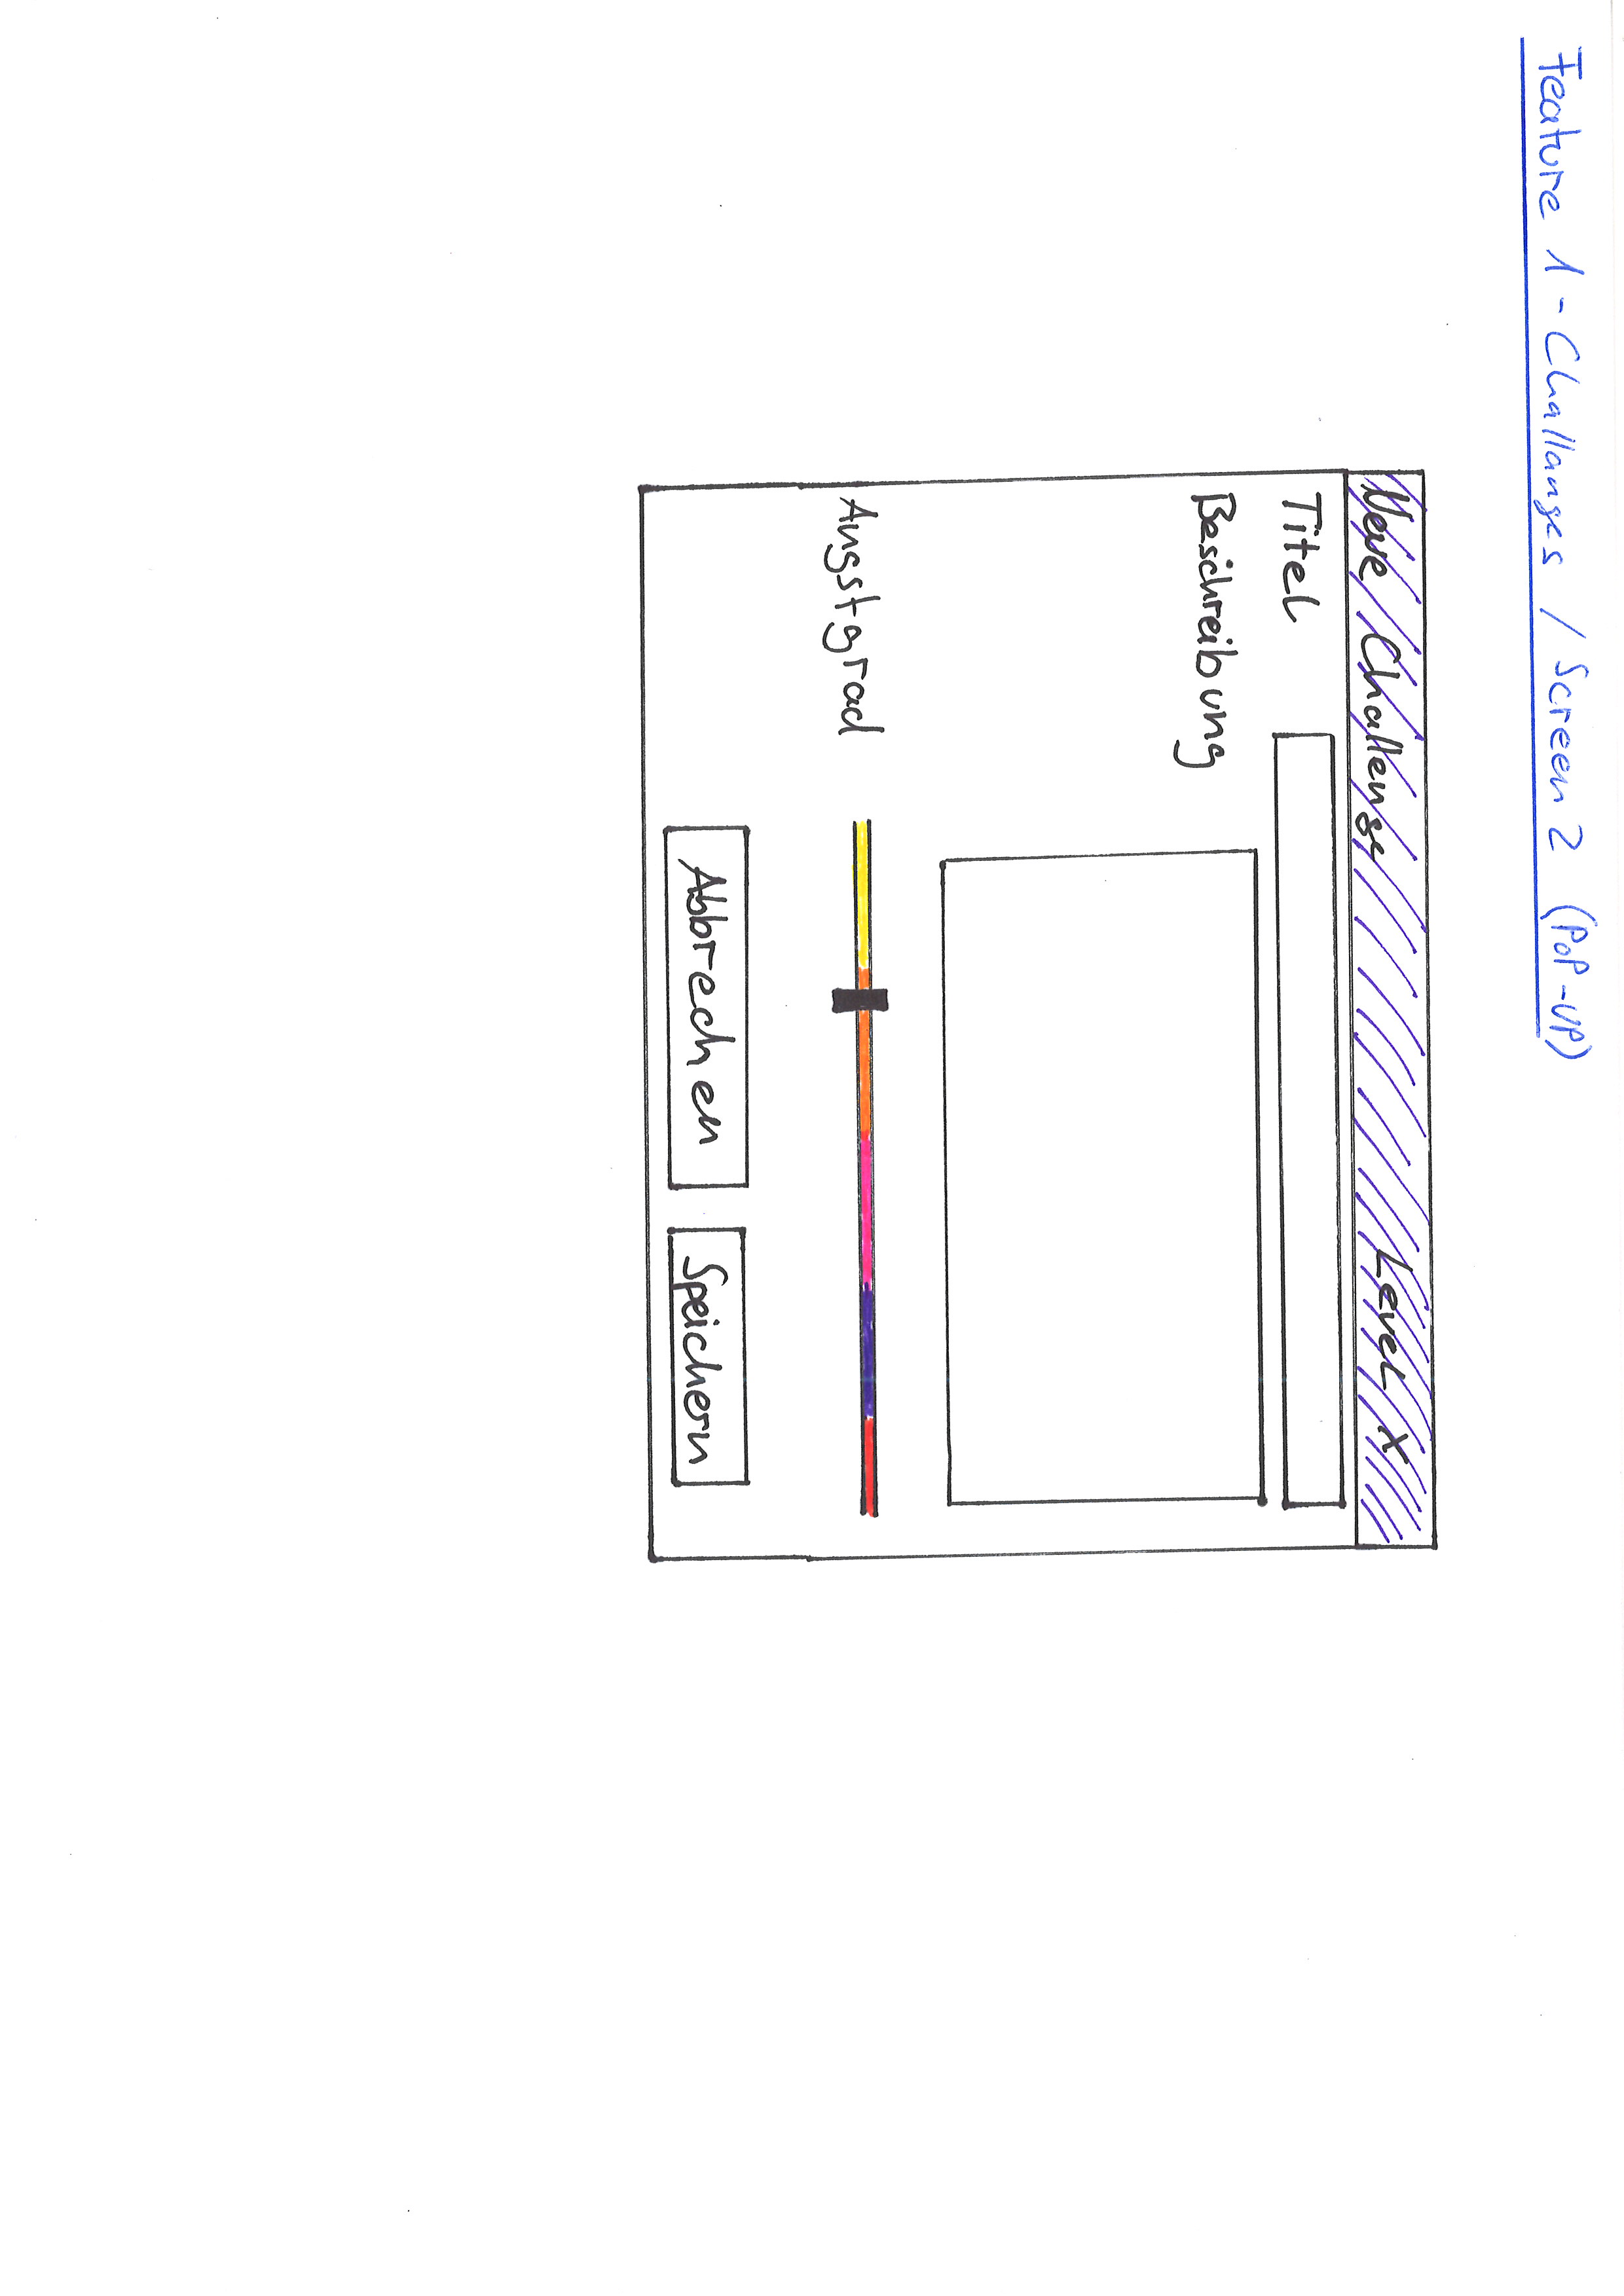 Feature 1 - Challanges / Screen 2 (PoP-UP)
Neue Challenge Level X
Titel
Beschreibung
Angstgrad
Abbrechen Speichern